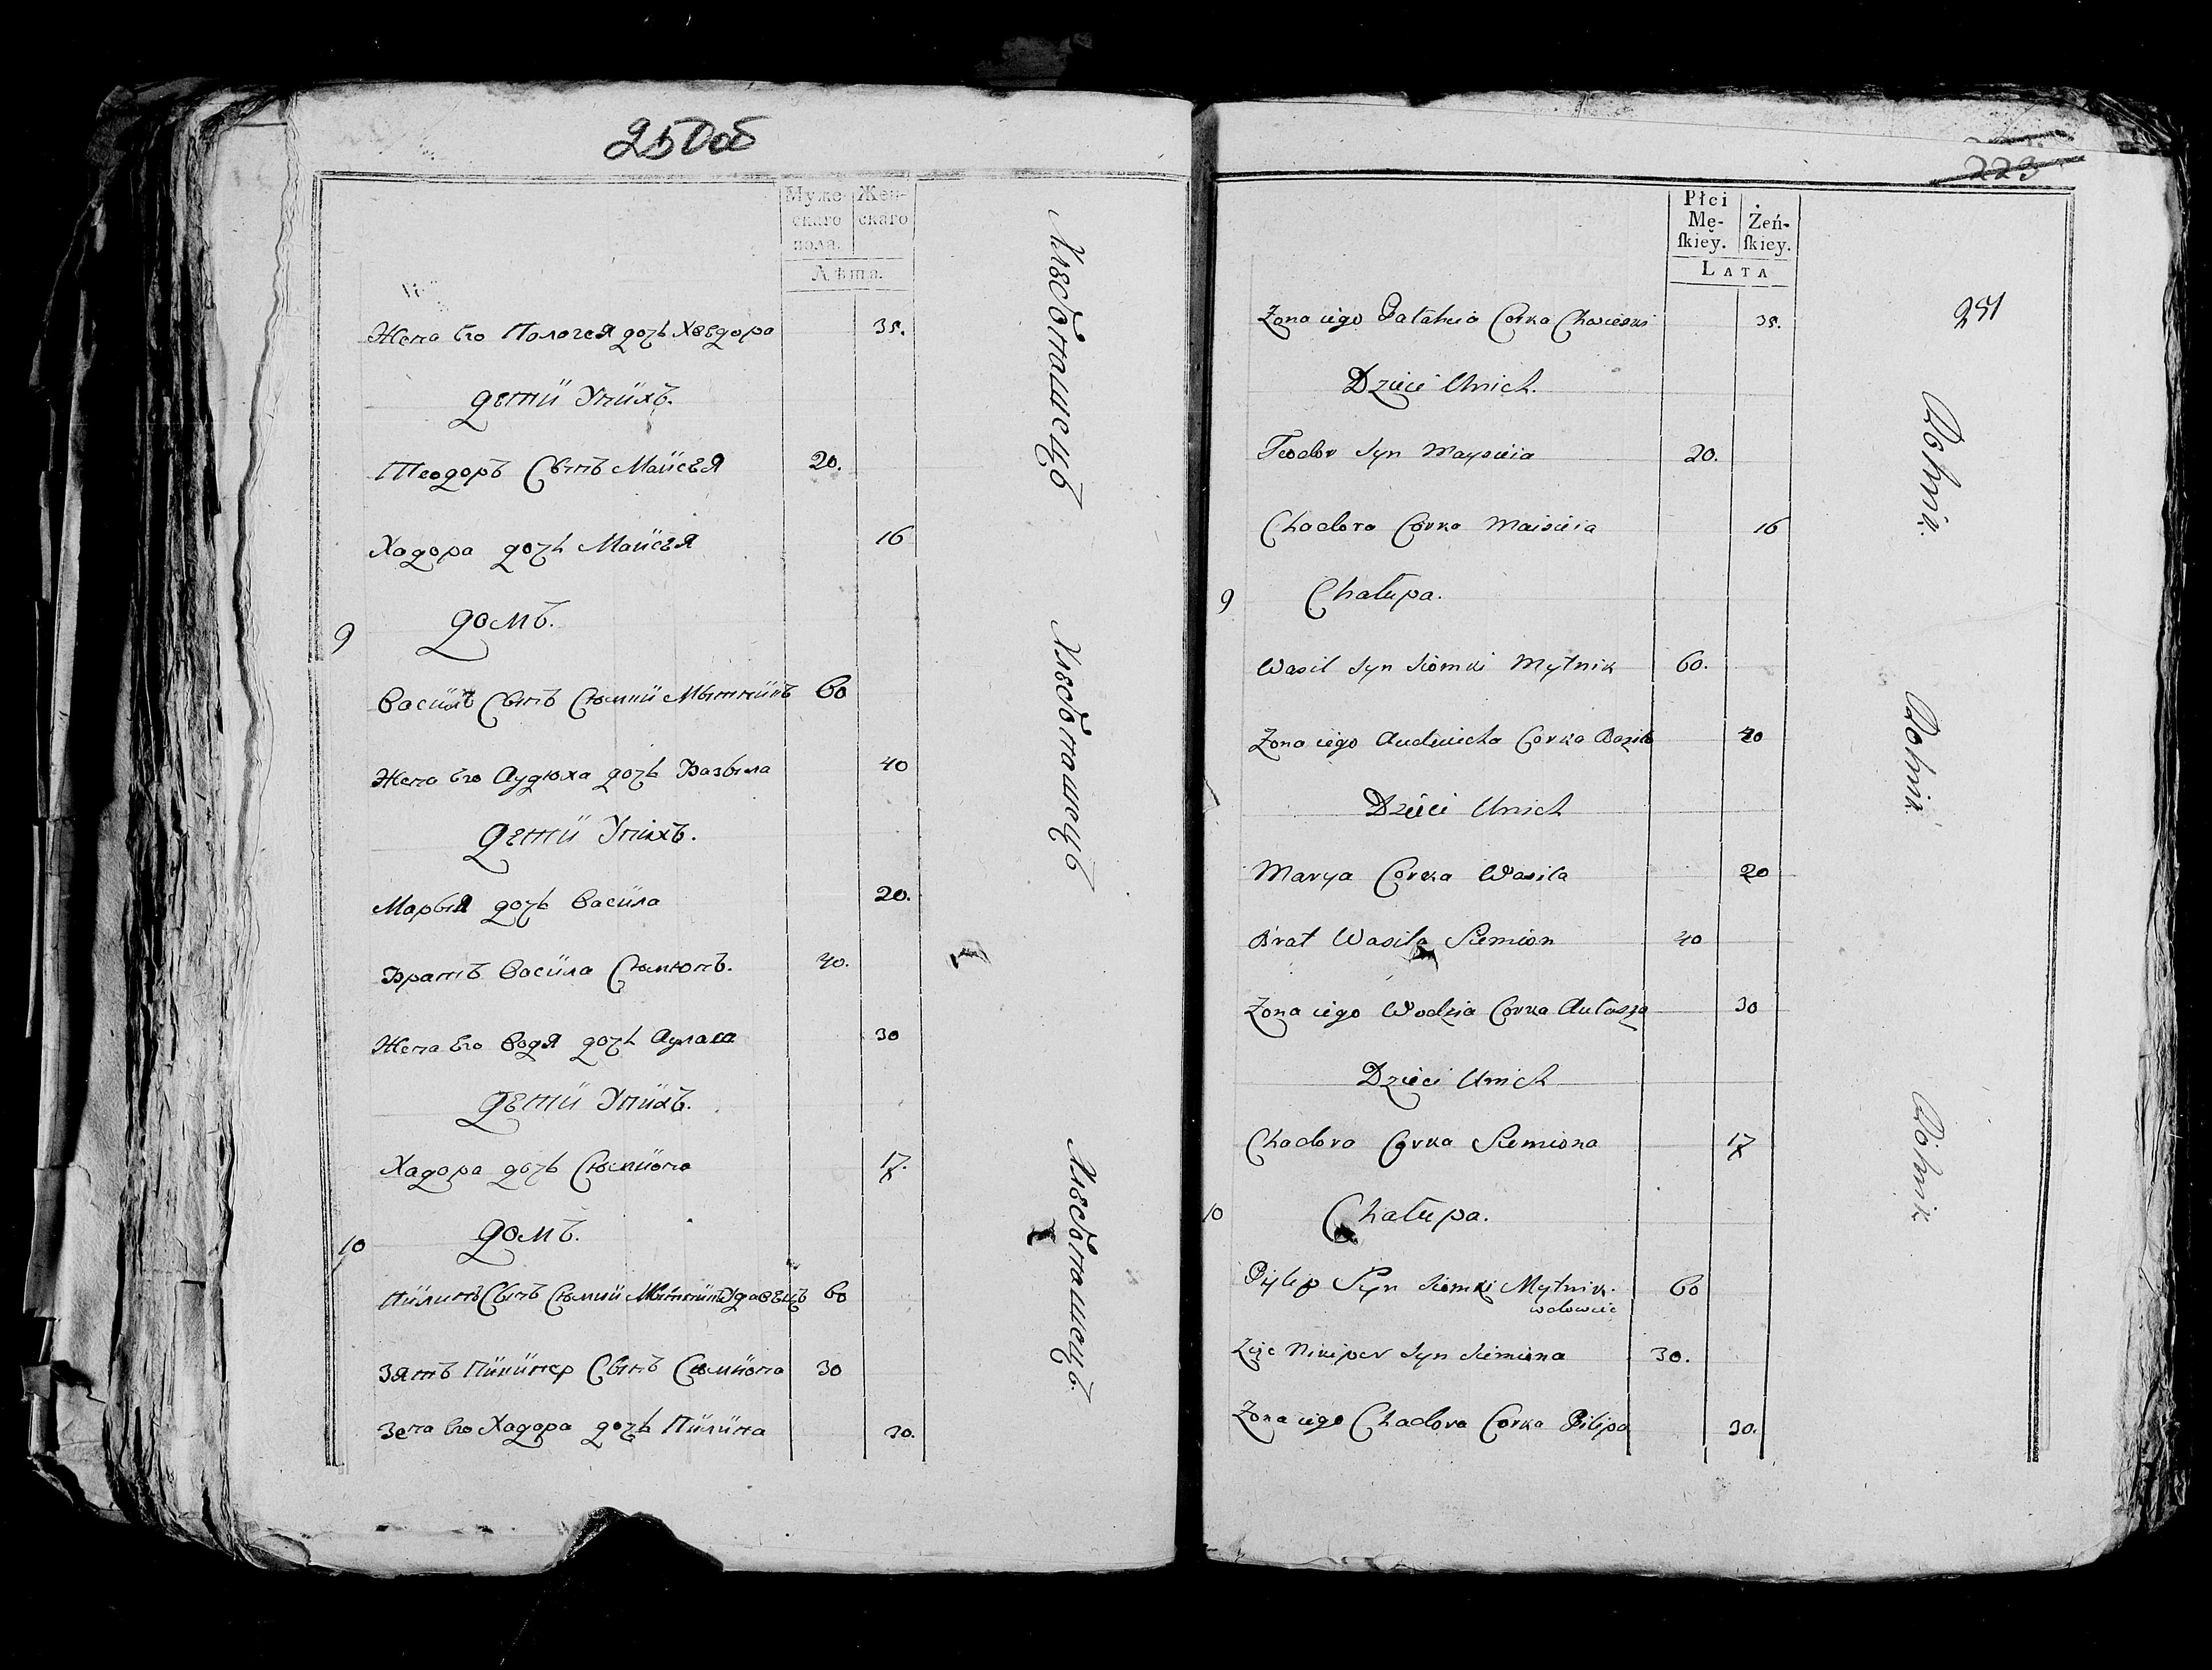 250об
Муже-
скаго
пола.
Жен-
скаго
Лѣта.
Жена Его Пологея дочь Хведора 35.
Дети Унихъ.
Теодоръ Сынъ Маисея 20.
Хадора дочь Маисея 16
9 Домъ.
Василь Сынъ Сюмки Мытникъ 60
Жена Его Аудюха дочь Базыла 40
Дети Унихъ.
Марыя дочь Васила 20.
Братъ Васила Сюмюнъ. 40.
Жена Его Водя дочь Ауласа 30
Дети Унихъ.
Хадора дочь Сюмиона 17.
10 Домъ.
Пилипъ Сынъ Сюмки Мытникъ Удовецъ 60
Зять Никипер Сынъ Сюмиона 30
Зена Его Хадора дочь Пилипа 30.
Хлебопашецъ
Хлебопашецъ
Хлебопашецъ.
223
Płci
Mę-
ſkiey.
Żeń-
ſkiey.
LATA
251
Zona iego Palahia Corka 35.
Dzieci Unich.
Teodor Syn Maysieia 20.
Chadora Corka Maisieia 16
9 Chałupa.
Wasil Syn Siomki Mytnik 60.
Zona iego Audiucha Corka Bazila 40
Dzieci Unich
Marya Corka Wasila 20
Brat Wasila Siemion 40
Zona iego Wodzia Corka Aułasza 30
Dzieci Unich
Chadora Corka Siemiona 17
10 Chałupa.
Pylip Syn Siomki Mytnik. 60
wdowiec
Zięc Nikiper Syn Siemiona 30.
Zona iego Chadora Corka Pilipa 30.
Rolnik.
Rolnik.
Rolnik